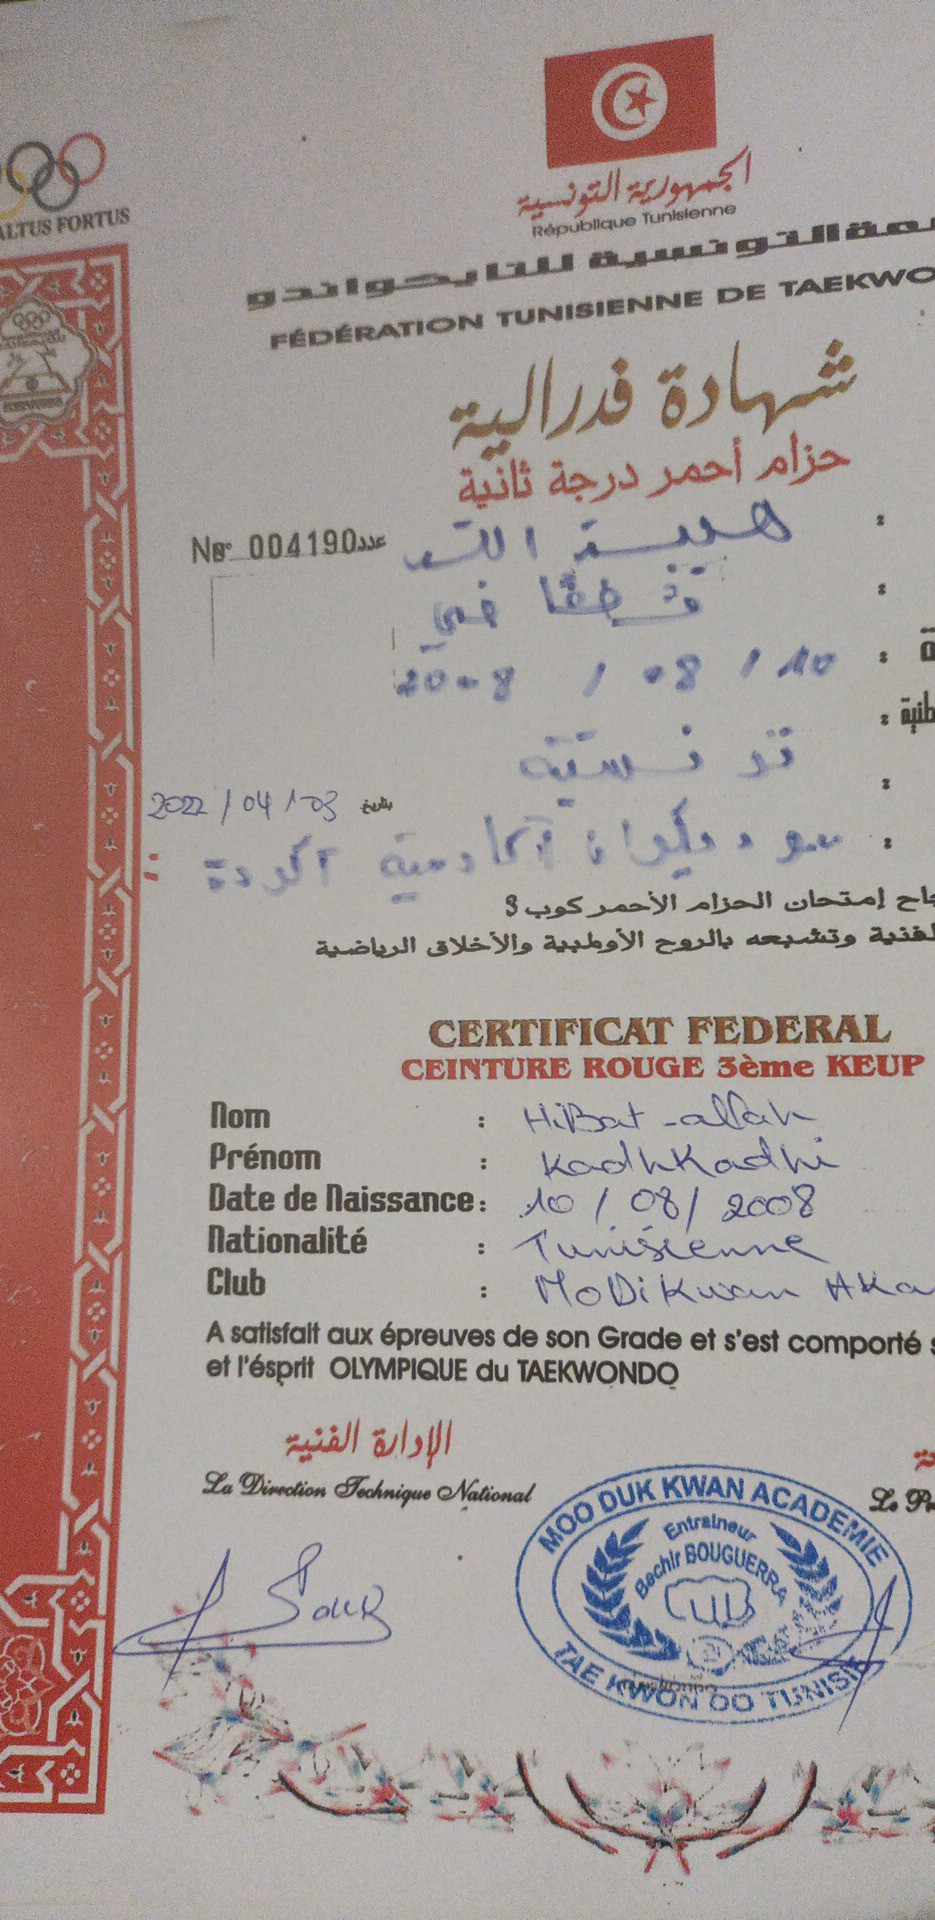 ALTUS FORTUS
الجمهورية التونسية
République Tunisienne
التونسية للتايكواندو
FÉDÉRATION TUNISIENNE DE TAEKWO
شهادة فدرالية
حزام أحمر درجة ثانية
هيبة الله :
No 004190 عدد
:
2008 / 08 / 10 :
تونسية
2022 / 04 / 03 بتاريخ
أكاديمية أكودة :
إمتحان الحزام الأحمر كوب 3
وتشبعه بالروح الأولمبية والأخلاق الرياضية
CERTIFICAT FEDERAL
CEINTURE ROUGE 3ème KEUP
Nom : HiBat-allah
Prénom : KadhKadhi
Date de Naissance : 10 / 08 / 2008
Nationalité : Tunisienne
Club : MoDiKwan Aka
A satisfait aux épreuves de son Grade et s'est comporté s
et l'ésprit OLYMPIQUE du TAEKWONDO
الإدارة الفنية
La Direction Technique National
MOO DUK KWAN ACADEMIE
Entraineur
Bechir BOUGUERRA
TAE KWON DO TUNISIE